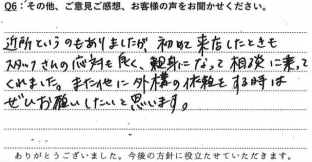 Q6：その他、ご意見ご感想、お客様の声をお聞かせください。
近所というのもありましたが、初めて来店したときも
スタッフさんの応対も良く、親身になって相談に乗って
くれました。また他に外構の依頼をする時は
ぜひお願いしたいと思います。
ありがとうございました。今後の方針に役立たせていただきます。